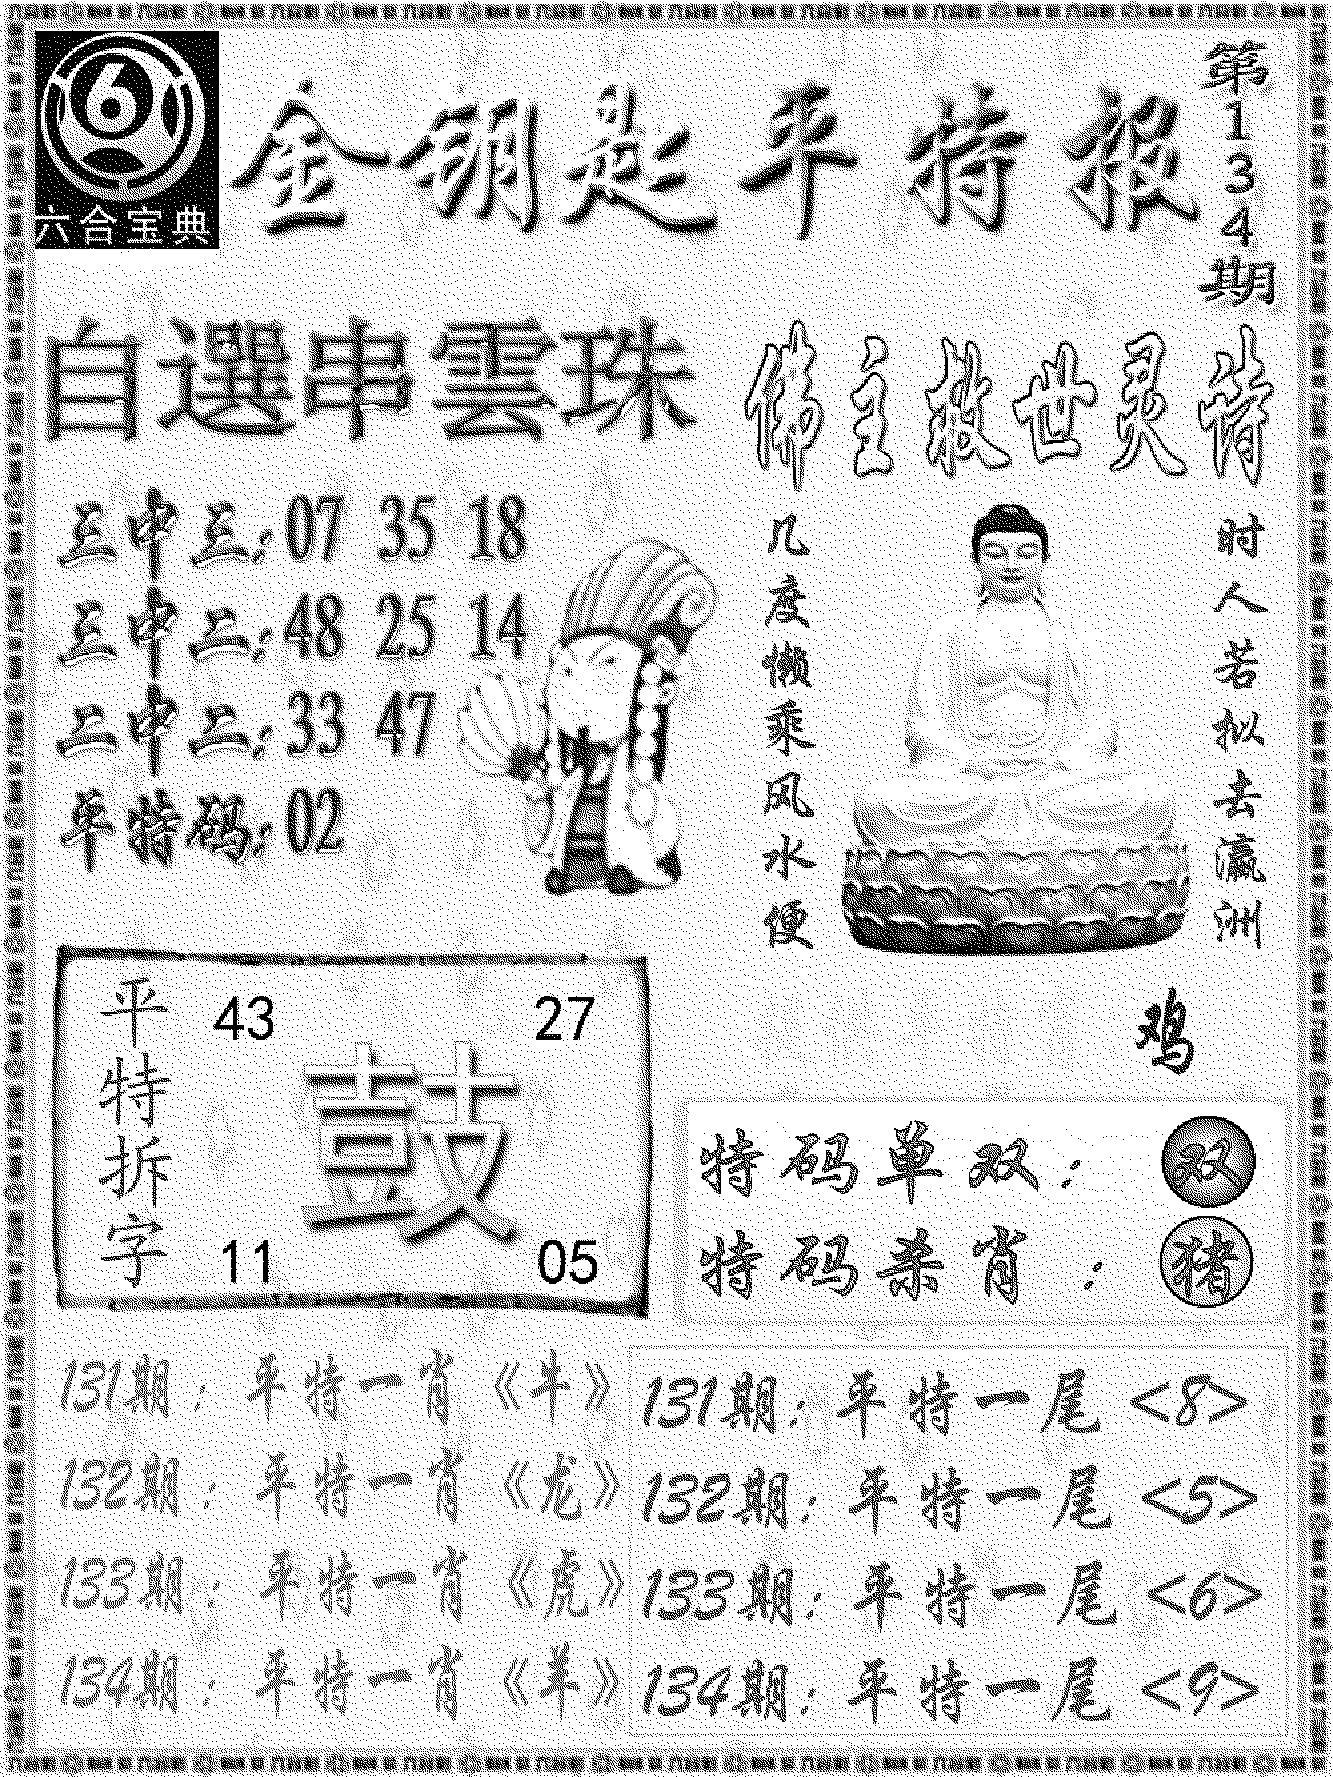 6
六合宝典
金钥匙平特报
第134期
自選串雲珠
三中三:07 35 18
三中二:48 25 14
二中二:33 47
平特码:02
佛主救世灵诗
时人若拟去瀛洲
几度懒乘风水便
鸡
平特拆字
43 27
鼓
11 05
特码单双:双
特码杀肖:猪
131期:平特一肖《牛》
132期:平特一肖《龙》
133期:平特一肖《虎》
134期:平特一肖《羊》
131期:平特一尾<8>
132期:平特一尾<5>
133期:平特一尾<6>
134期:平特一尾<9>